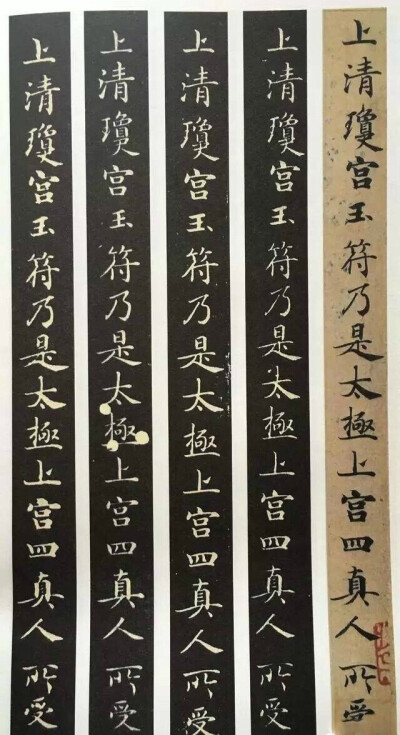 上清瓊宮玉符乃是太極上宮四真人所受
上清瓊宮玉符乃是太極上宮四真人所受
上清瓊宮玉符乃是太極上宮四真人所受
上清瓊宮玉符乃是太極上宮四真人所受
上清瓊宮玉符乃是太極上宮四真人所受